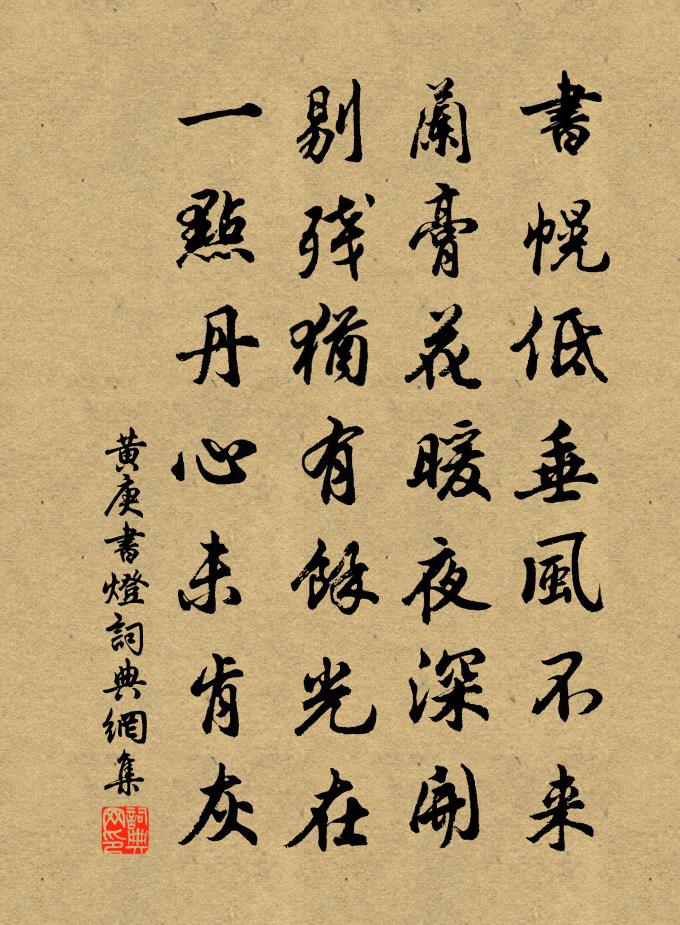 書幌低垂風不来
蘭膏花暖夜深開
剔残猶有餘光在
一點丹心未肯灰
黄庚書燈詞典網集
詞典网印